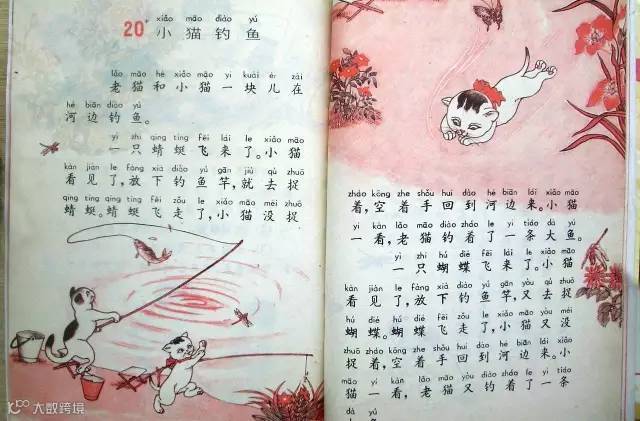 xiǎo māo diào yú
20* 小猫钓鱼
lǎo māo hé xiǎo māo yi kuài ér zài
老猫和小猫一块儿在
hé biān diào yú
河边钓鱼。
yi zhī qīng tíng fēi lái le xiǎo māo
一只蜻蜓飞来了。小猫
kàn jiàn le fàng xià diào yú gān jiù qù zhuō
看见了,放下钓鱼竿,就去捉
qīng tíng qīng tíng fēi zǒu le xiǎo māo méi zhuō
蜻蜓。蜻蜓飞走了,小猫没捉
zháo kōng zhe shǒu huí dào hé biān lái xiǎo māo
着,空着手回到河边来。小猫
yi kàn lǎo māo diào zháo le yi tiáo dà yú
一看,老猫钓着了一条大鱼。
yi zhī hú dié fēi lái le xiǎo māo
一只蝴蝶飞来了。小猫
kàn jiàn le fàng xià diào yú gān yòu qù zhuō
看见了,放下钓鱼竿,又去捉
hú dié hú dié fēi zǒu le xiǎo māo yòu méi
蝴蝶。蝴蝶飞走了,小猫又没
zhuō zháo kōng zhe shǒu huí dào hé biān lái xiǎo
捉着,空着手回到河边来。小
māo yi kàn lǎo māo yòu diào zháo le yi tiáo
猫一看,老猫又钓着了一条
dà yú
大数跨境